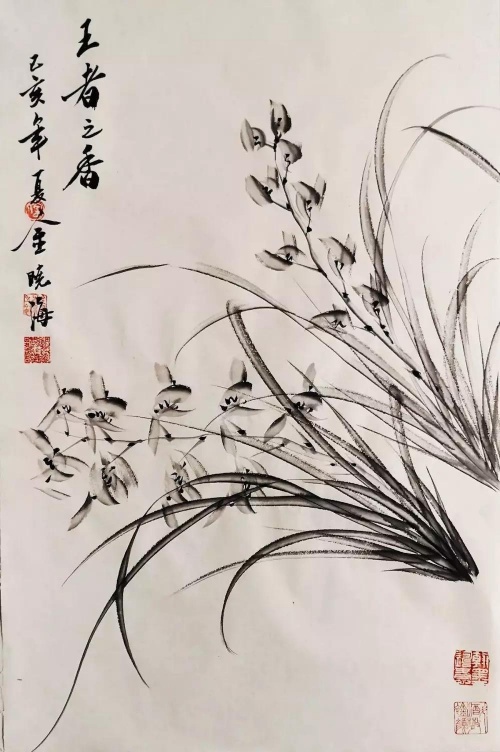 王者之香
己亥年夏金晓海